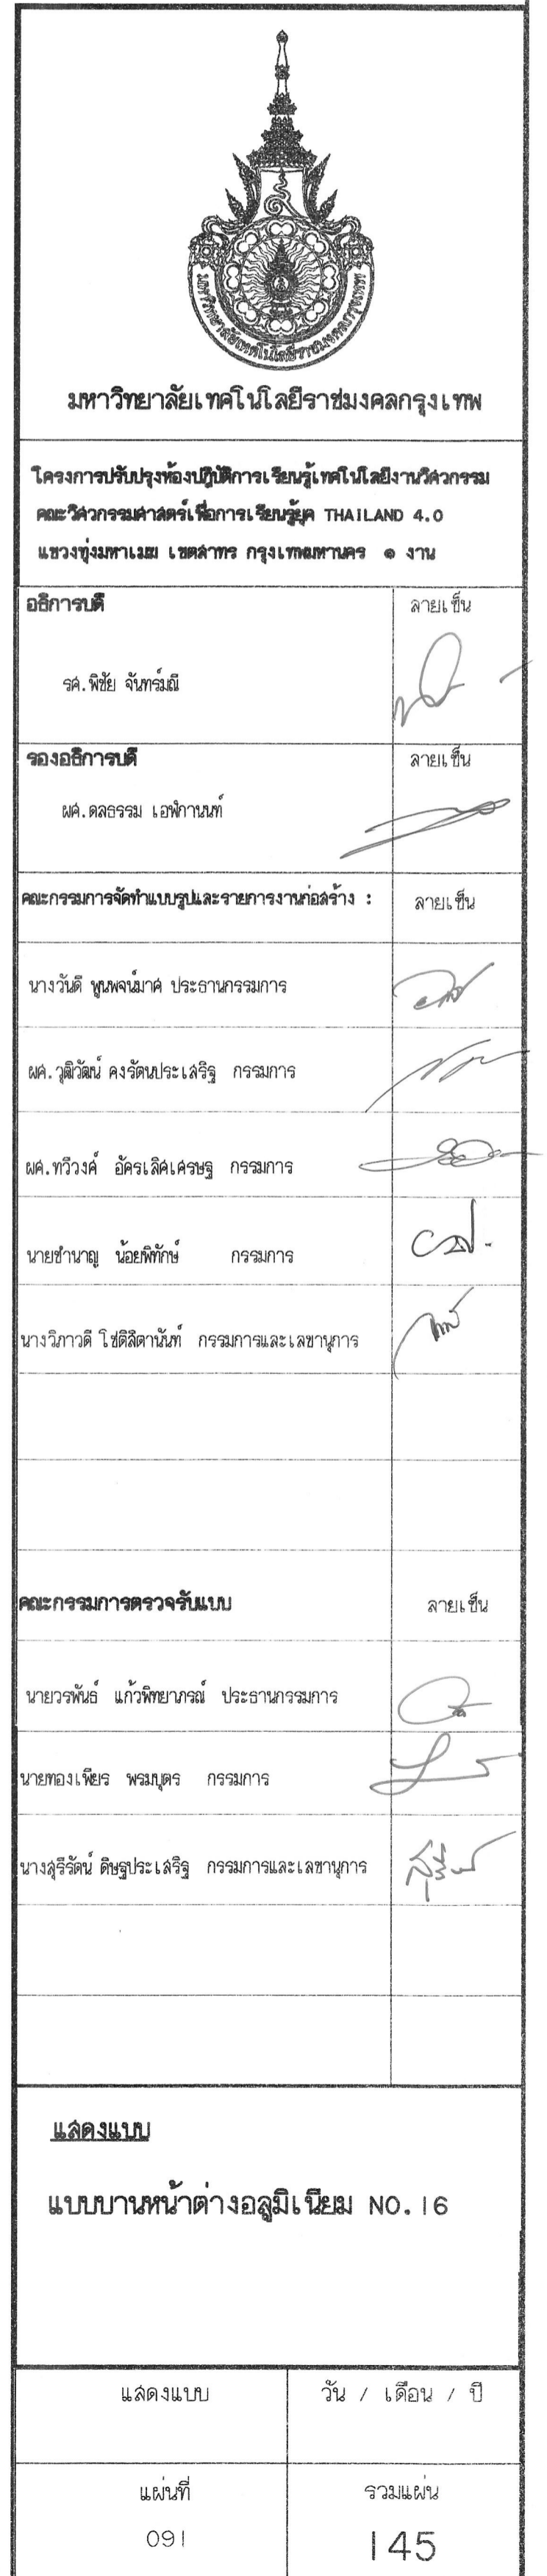 มหาวิทยาลัยเทคโนโลยีราชมงคลกรุงเทพ
มหาวิทยาลัยเทคโนโลยีราชมงคลกรุงเทพ
โครงการปรับปรุงห้องปฏิบัติการเรียนรู้เทคโนโลยีงานวิศวกรรม
คณะวิศวกรรมศาสตร์เพื่อการเรียนรู้ยุค THAILAND 4.0
แขวงทุ่งมหาเมฆ เขตสาทร กรุงเทพมหานคร ๑ งาน
อธิการบดี ลายเซ็น
รศ.พิชัย จันทร์มณี
รองอธิการบดี ลายเซ็น
ผศ.ดลธรรม เอฬกานนท์
คณะกรรมการจัดทำแบบรูปและรายการงานก่อสร้าง : ลายเซ็น
นางวันดี พูนพจน์มาศ ประธานกรรมการ
ผศ.วุฒิวัฒน์ คงรัตนประเสริฐ กรรมการ
ผศ.ทวีวงศ์ อัครเลิศเศรษฐ กรรมการ
นายชำนาญ น้อยพิทักษ์ กรรมการ
นางวิภาวดี โชติลิตานันท์ กรรมการและเลขานุการ
คณะกรรมการตรวจรับแบบ ลายเซ็น
นายวรพันธ์ แก้วพิทยาภรณ์ ประธานกรรมการ
นายทองเพียร พรมบุตร กรรมการ
นางสุรีรัตน์ ดิษฐประเสริฐ กรรมการและเลขานุการ
แสดงแบบ
แบบบานหน้าต่างอลูมิเนียม NO.16
แสดงแบบ วัน / เดือน / ปี
แผ่นที่ รวมแผ่น
091 145